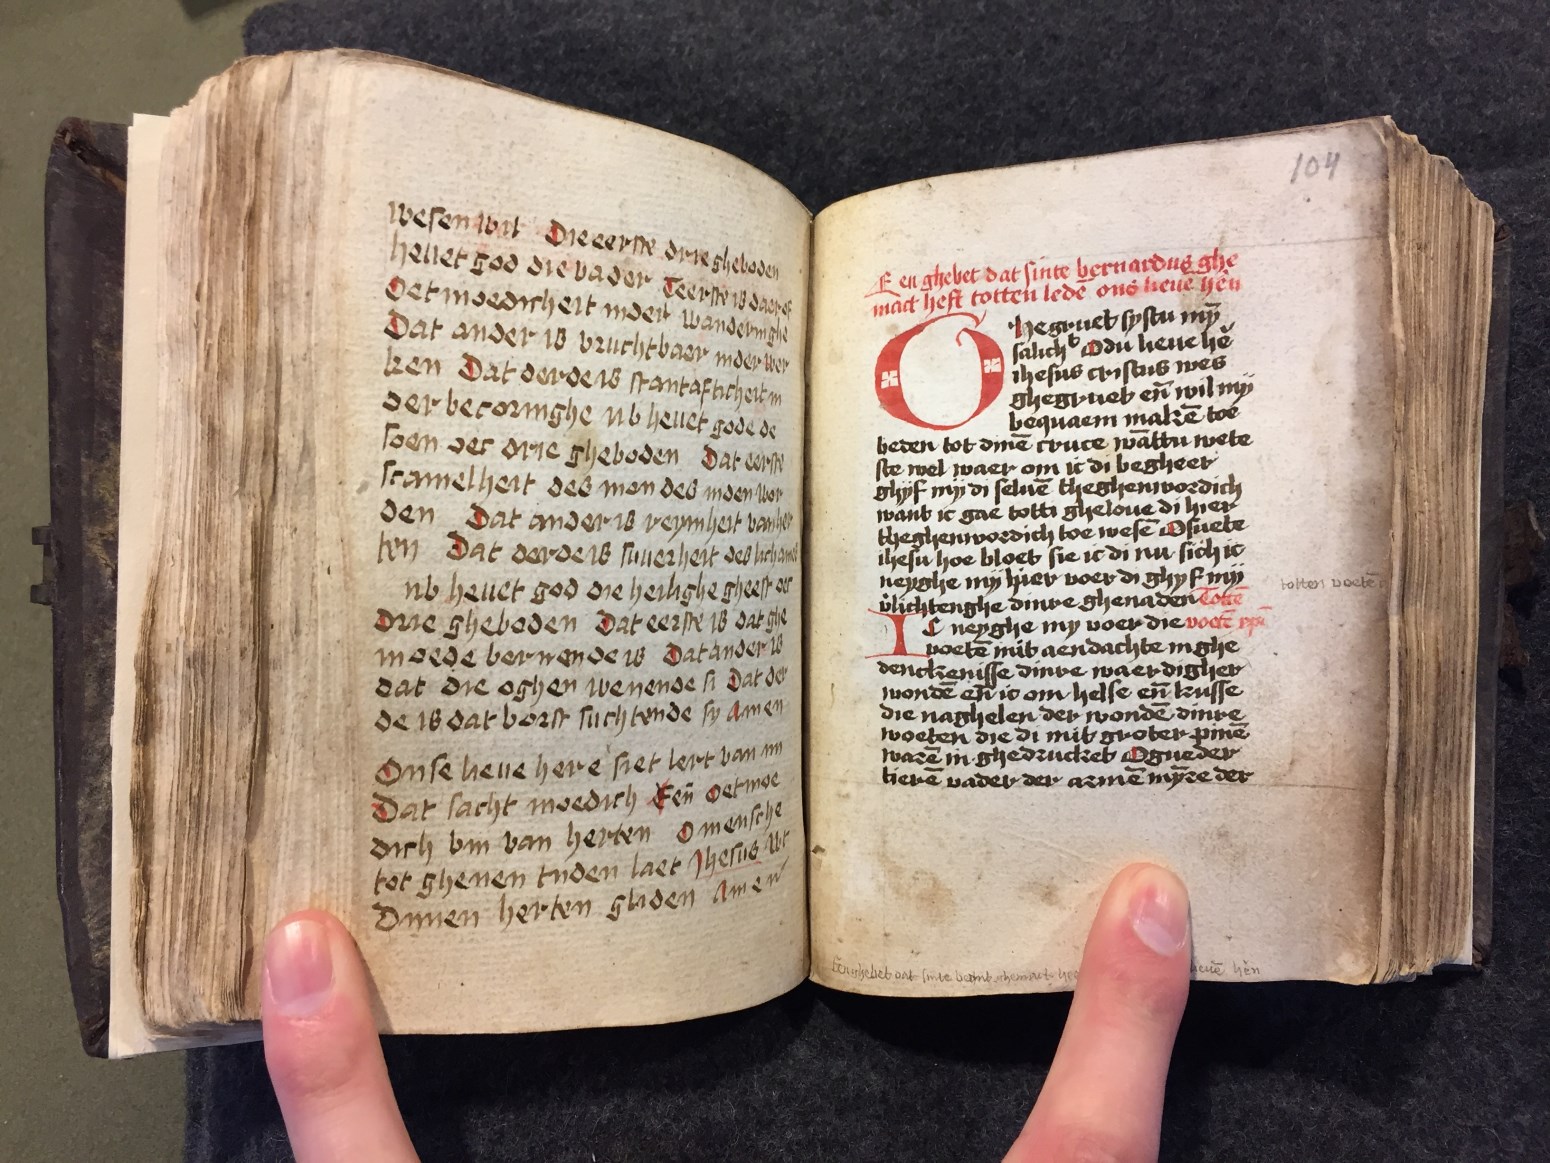 wesen wil Die eerste drie gheboden
heuet god die vader Teerste is daer of
Oetmoedicheit indeir wanderinghe
Dat ander is vruchtbaer inder wer
ken Dat derde is stantafticheit in
der becoringhe nb heuet gode de
soen der drie gheboden Dat eerste
scamelheit des mondes inden wor
den Dat ander is reynheit van her
ten Dat derde is suuerheit des lichames
nb heuet god die heilighe gheest der
Drie gheboden Dat eerste is dat ghe
moede bernende is Dat ander is
dat die oghen wenende si Dat der
de is dat borst suchtende sy Amen
Onse lieue here siet lert van mi
Dat sacht moedich Eeñ oetmoe
dich bin van herten O mensche
tot ghenen tiden laet Jhesus wt
Dinen herten gliden Amen
104
Een ghebet dat sinte bernardus ghe
mact heft totten ledē ons lieue hēn
O
Ghegruet systu mÿ
salichᵗ Odu lieue hē
ihesus cristus wes
ghegruet eñ wil mÿ
bequaem makē toe
beden tot dinē cruce wāttu wete
ste wel waer om ic di begheer
ghyf mÿ di seluē theghenwordich
want ic gae totti gheloue di hier
theghenwordich toe wesē Osuete
ihesu hoe bloet sie ic di nu sich ic
neyghe mÿ hier voer di ghyf mÿ
v̄lichtenghe dinre ghenaden Totte
IC neyghe my voer die voetē xpī
voetē mit aendachte in ghe
denckenisse dinre waerdigher
wondē eñ ic om helse eñ kusse
die naghelen der wondē dinre
voeten die di mit groter pinē
warē in ghedrucket Ogueder
tierē vader der armē mÿre der
totten voetē
Een ghebet dat sinte bernt ghemact he
lieuē hēn